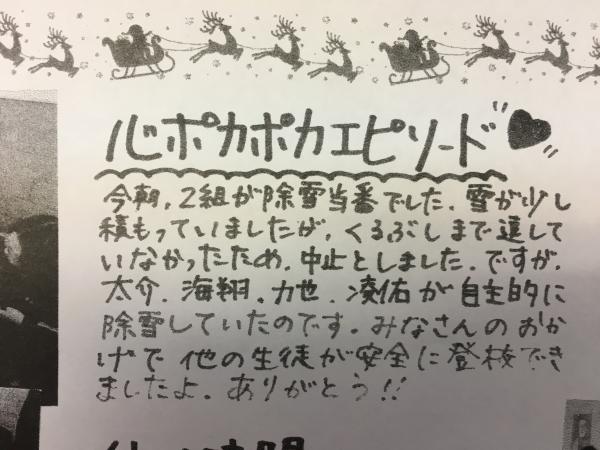 心ポカポカエピソード
今朝、2組が除雪当番でした。雪が少し
積もっていましたが、くるぶしまで達して
いなかったため、中止としました。ですが、
太介、海翔、力也、凌佑が自主的に
除雪していたのです。みなさんのおか
げで他の生徒が安全に登校でき
ましたよ。ありがとう!!